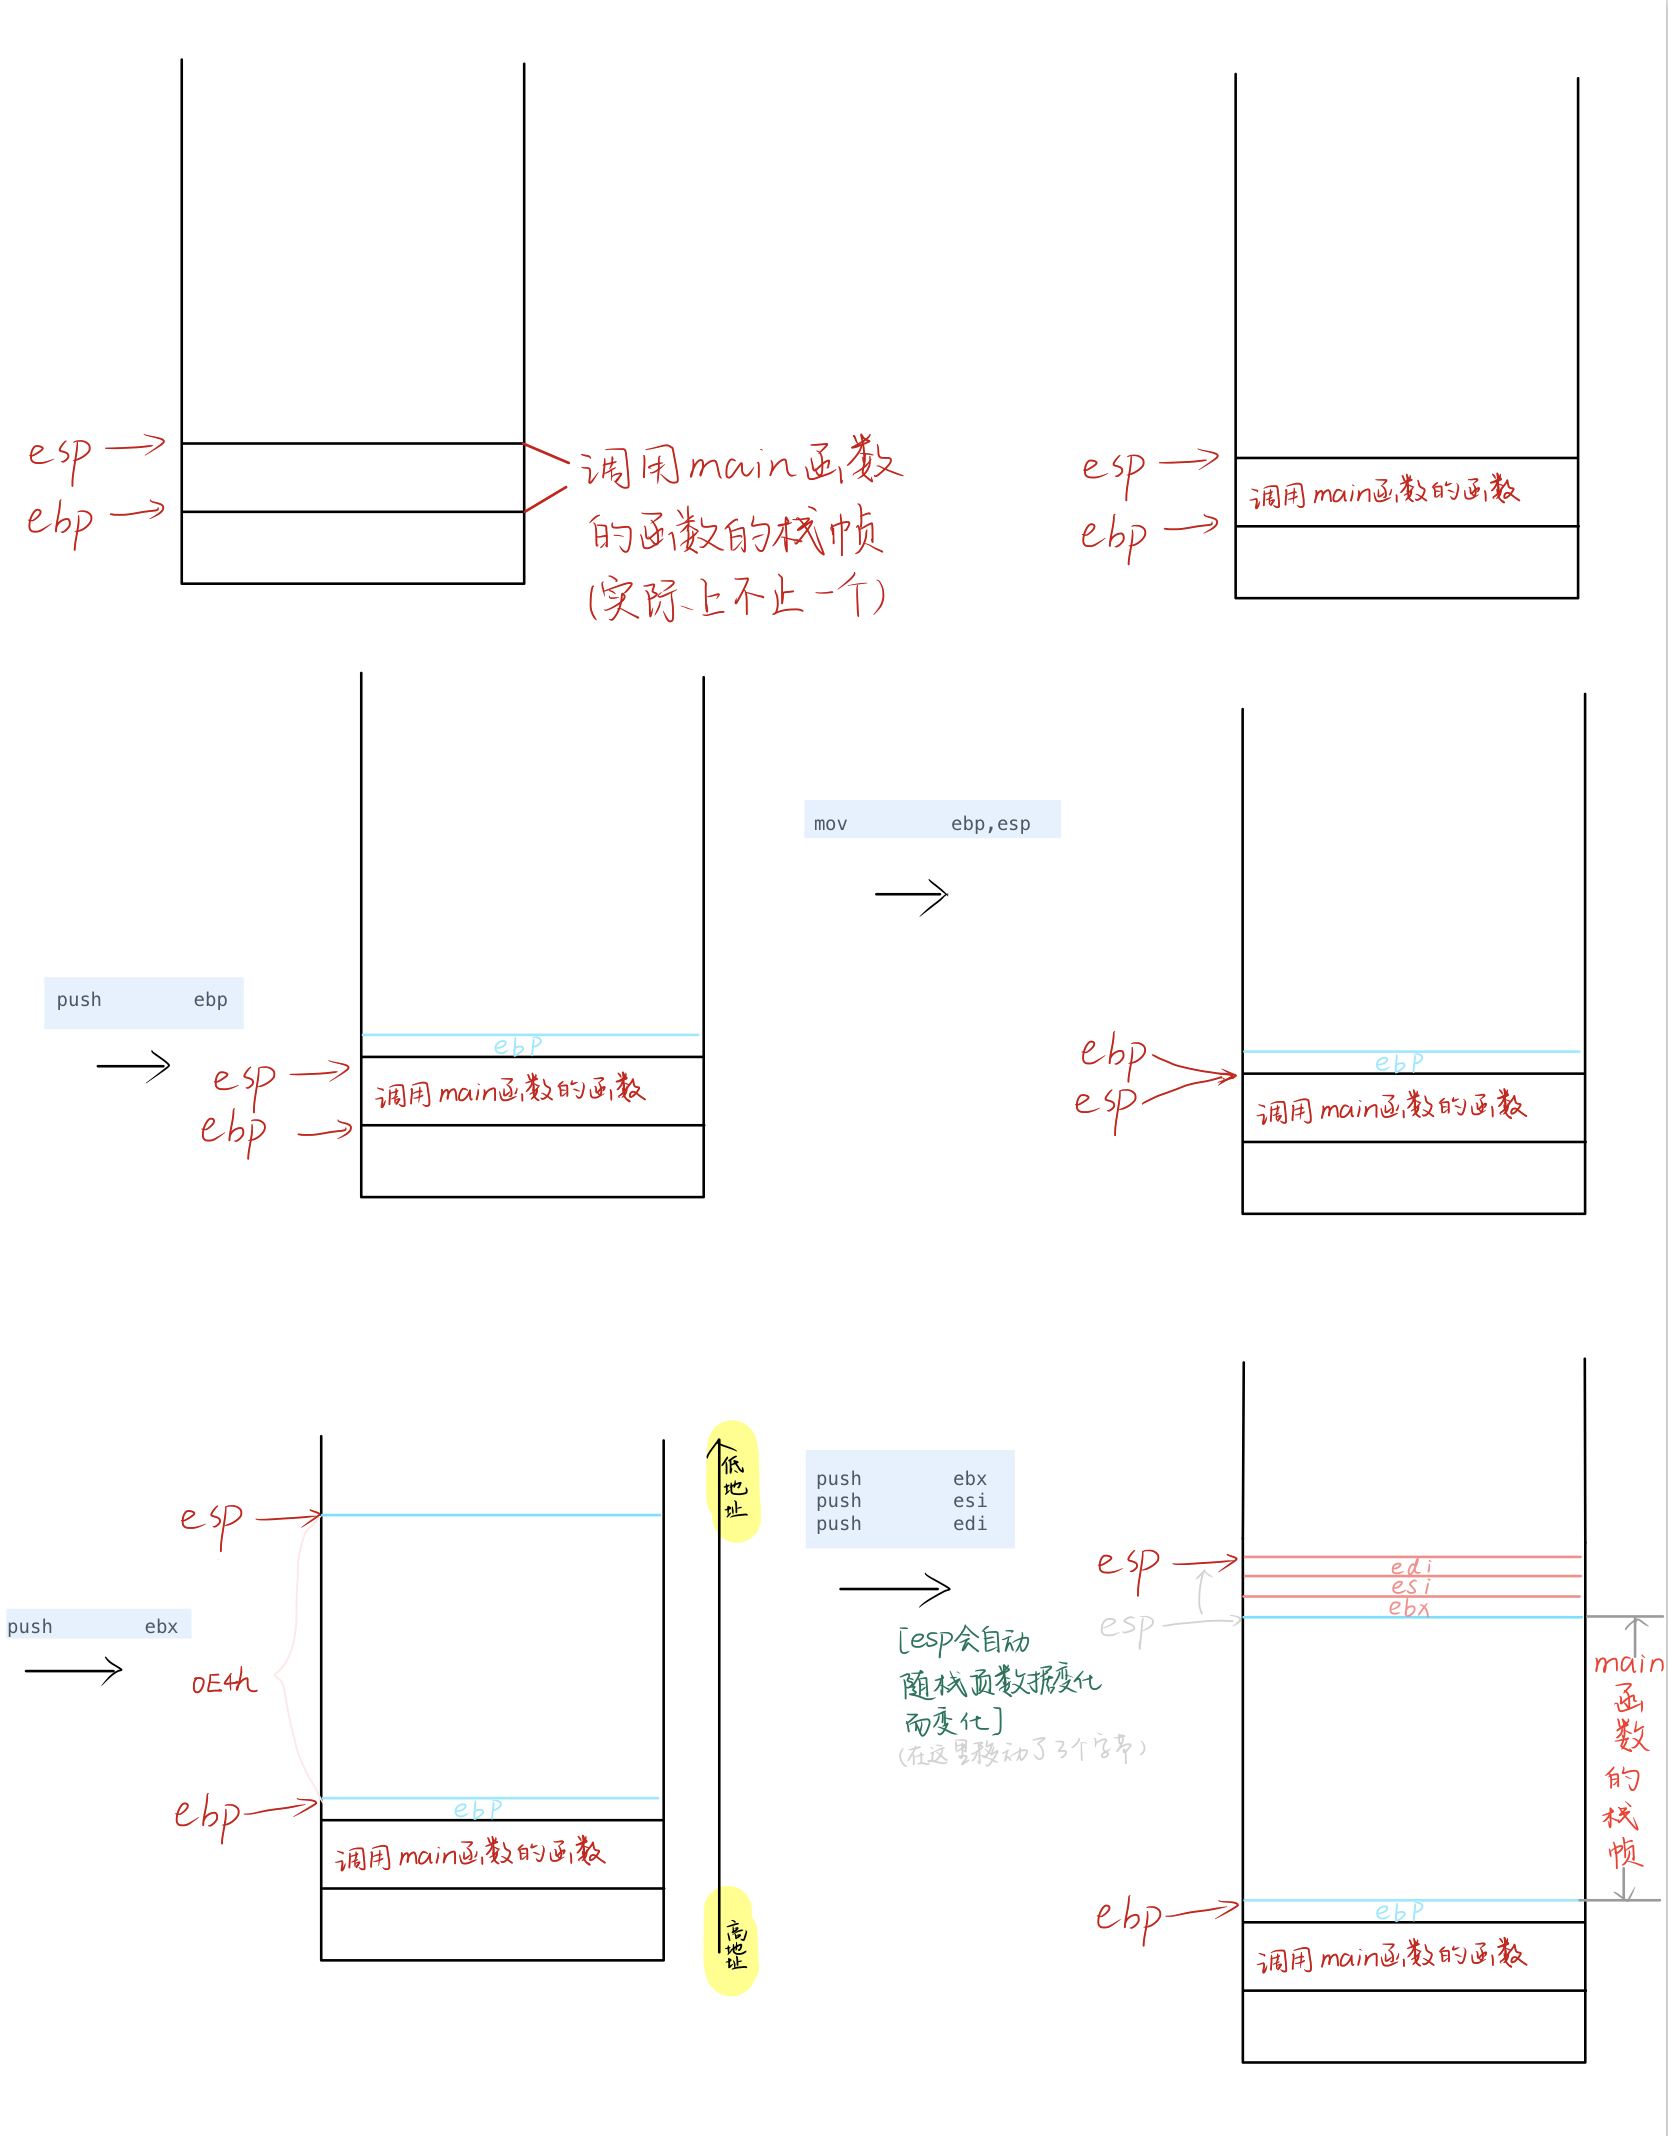 esp
ebp
调用main函数
的函数的栈帧
(实际上不止一个)
esp
调用main函数的函数
ebp
push ebp
ebp
esp
调用main函数的函数
ebp
mov ebp,esp
ebp
ebp
esp
调用main函数的函数
push ebx
esp
0E4h
ebp
ebp
调用main函数的函数
低地址
高地址
push ebx
push esi
push edi
[esp会自动
随栈顶数据变化
而变化]
(在这里移动了3个字节)
esp
esp
edi
esi
ebx
main函数的栈帧
ebp
ebp
调用main函数的函数